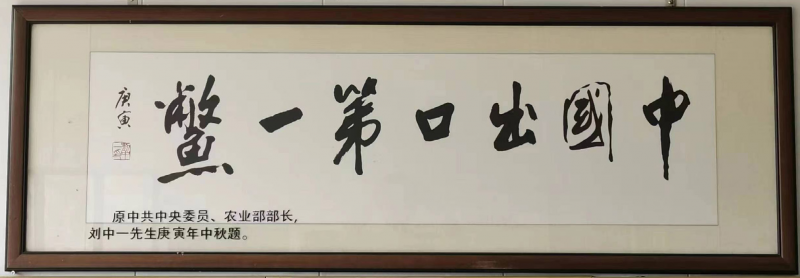 中國出口第一鱉
庚寅
原中共中央委员、农业部部长，
刘中一先生庚寅年中秋题。